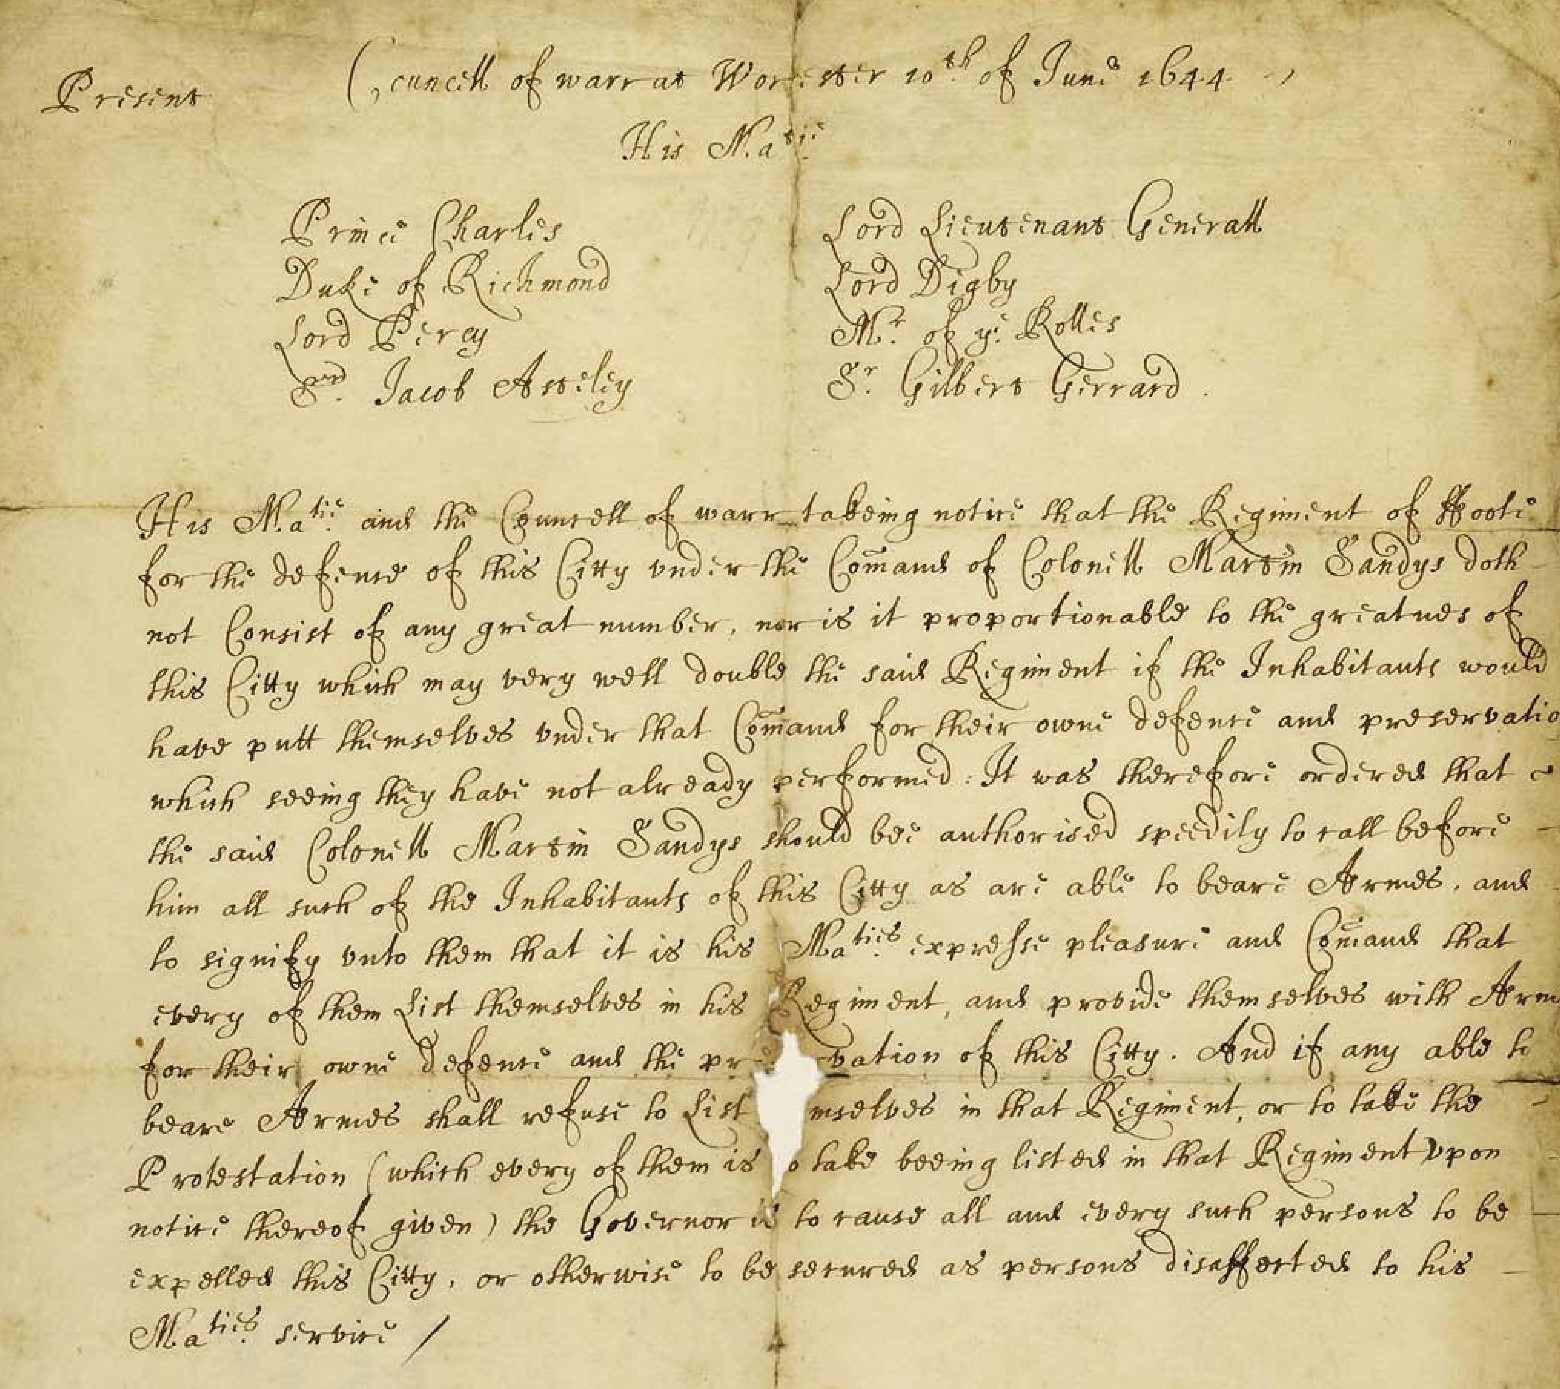 Councell of warr at Worcester 10th of June 1644
Present
His Matie
Prince Charles
Duke of Richmond
Lord Percy
Sr. Jacob Asteley
Lord Lieutenant Generall
Lord Digby
Mr. of ye. Rolles
Sr. Gilbert Gerrard.
His Matie. and the Councell of warr takeing notice that the Regiment of ffoote
for the defence of this Citty vnder the Comand of Colonell Martin Sandys doth
not Consist of any great number, nor is it proportionable to the greatnes of
this Citty which may very well double the said Regiment if the Inhabitants would
have putt themselves vnder that Comand for their owne defence and preservatio
which seeing they have not already performed: It was therefore ordered that
the said Colonell Martin Sandys should bee authorised speedily to call before
him all such of the Inhabitants of this Citty as are able to beare Armes, and
to signify vnto them that it is his Maties. expresse pleasure and Comand that
every of them List themselves in his Regiment, and provide themselves with Arm
for their owne defence and the pre vation of this Citty. And if any able to
beare Armes shall refuse to List mselves in that Regiment, or to take the
Protestation (which every of them is o take beeing listed in that Regiment vpon
notice thereof given) the Governor is to cause all and every such persons to be
expelled this Citty, or otherwise to be secured as persons disaffected to his
Maties. service /